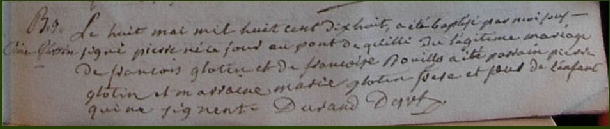 Bs. Le huit mai mil huit cent dix huit, a été baptisé par moi sous-
signé pierre né ce jour au pont de du légitime mariage
de francois glotin et de francoise Bouillo a été parrain pierre
glotin et marraine marie glotin frere et sœur de l'enfant
qui ne signent. Durand Desvt